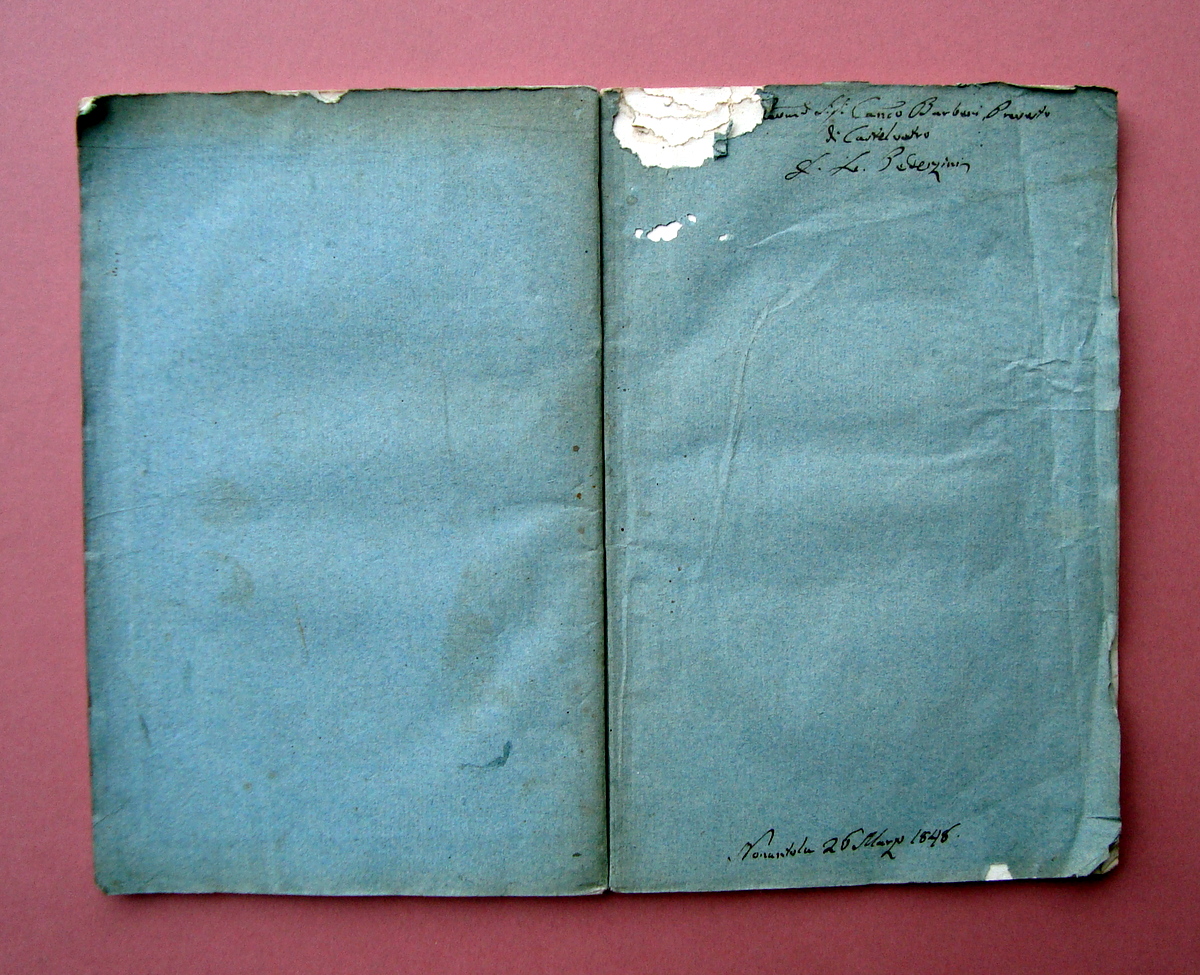 Sig. Can.co Barbieri Prevosto
di Castelvetro
Pederzini
Nonantola 26 Marzo 1846.